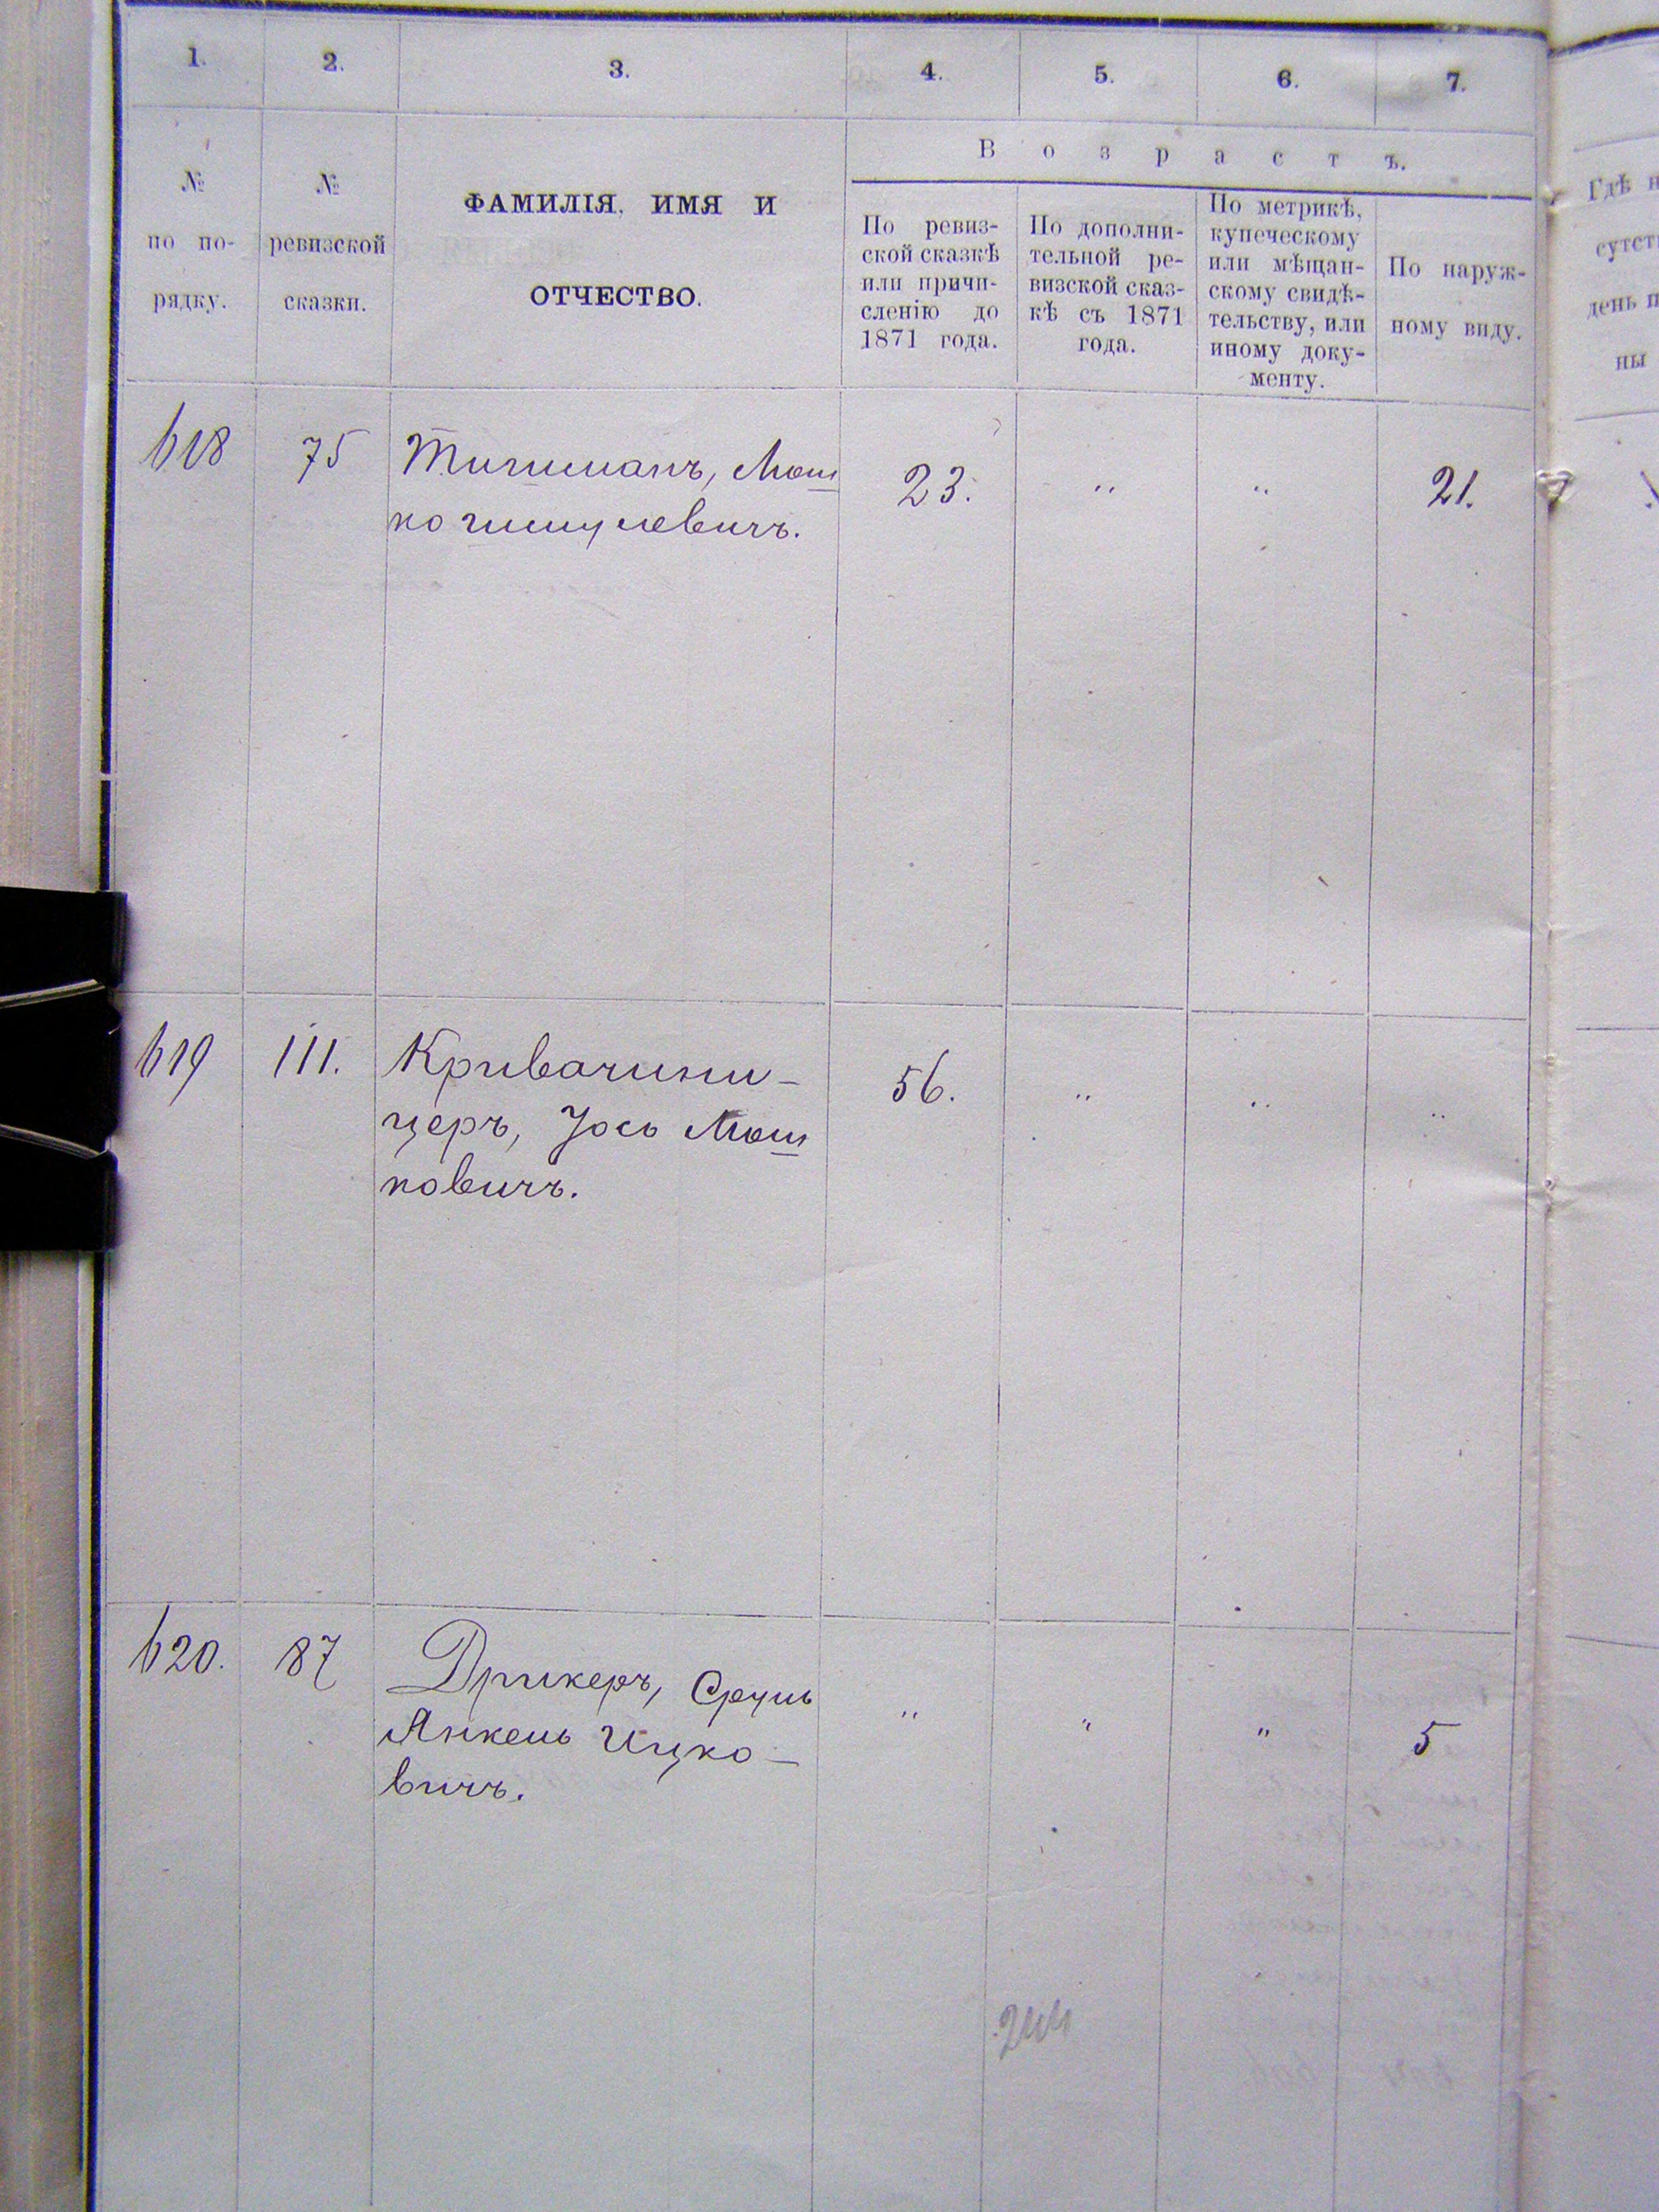 1. 2. 3. 4. 5. 6. 7.
№ по по- рядку.
№ ревизской сказки.
ФАМИЛІЯ, ИМЯ И
ОТЧЕСТВО.
Возрастъ.
По ревиз-
ской сказкѣ
или причи-
сленію до
1871 года.
По дополни-
тельной ре-
визской сказ-
кѣ съ 1871
года.
По метрикѣ,
купеческому
или мѣщан-
скому свидѣ-
тельству, или
иному доку-
менту.
По наруж-
ному виду.
Гдѣ
день
ны
618 75 Тигшманъ, Мош 23. " " 21.
ко
619 111. Кривачини- 56. " " "
церъ, Іось Мош
ковичъ.
620. 87 Дрикеръ, Сруль " " " 5
Янкель Ицко-
вичъ.
244